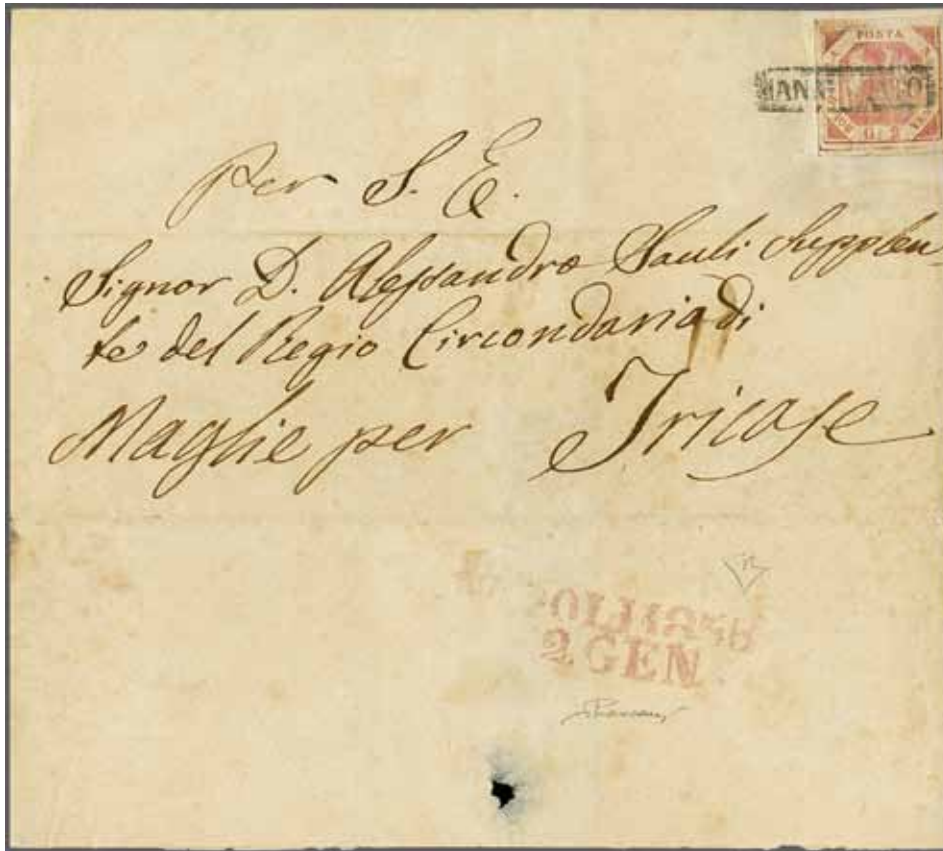 POSTA
G. 2
Per S. E.
Signor D. Alessandro Sauli Supplen-
te del Regio Circondario di
Maglie per Tricase
2 GEN.